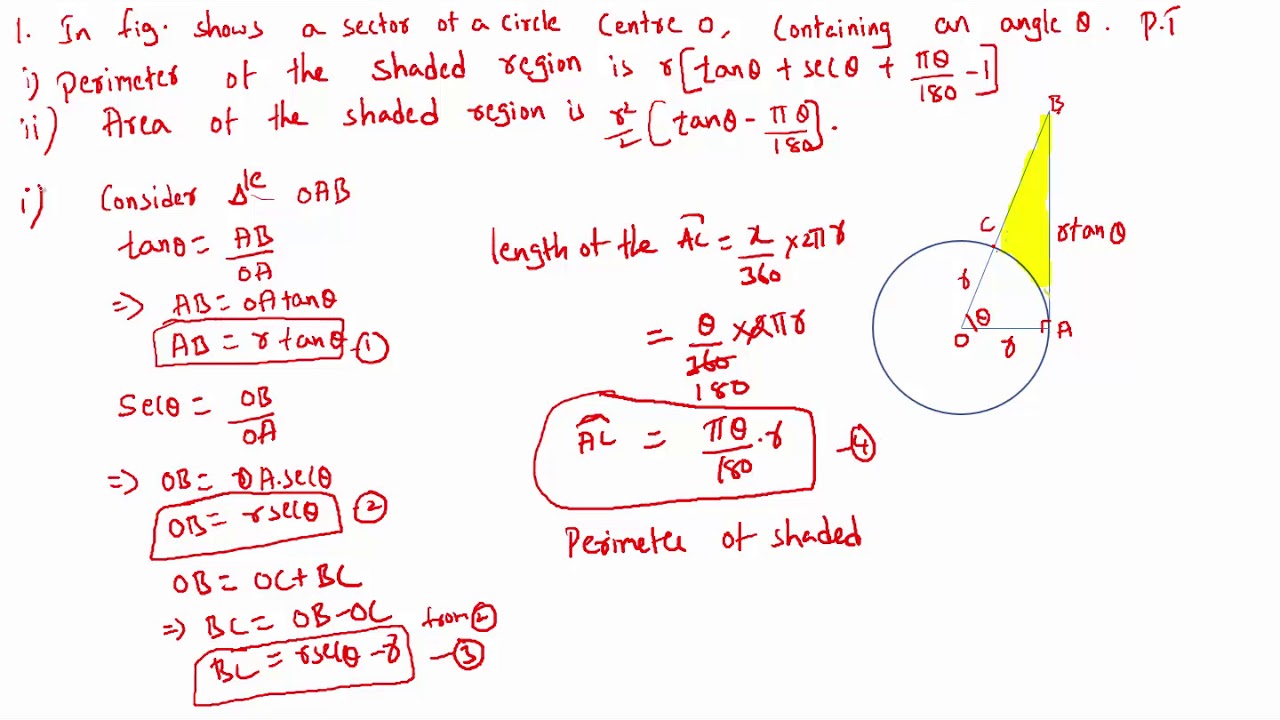 1. In fig. shows a sector of a circle centre O, containing an angle θ. P.T
i) perimeter of the shaded region is r[tanθ + secθ + πθ/180 - 1]
ii) Area of the shaded region is r²/2 [tanθ - πθ/180].
i) Consider Δle OAB
tanθ = AB/OA
=> AB = OA tanθ
AB = r tanθ -①
secθ = OB/OA
=> OB = OA.secθ
OB = r secθ -②
OB = OC + BC
=> BC = OB - OC from ②
BC = r secθ - r -③
length of the AC = x/360 × 2πr
= θ/360 × 2πr
180
AC = πθ/180 . r -④
Perimeter of shaded
B
C
r tanθ
r
θ
O
r
A